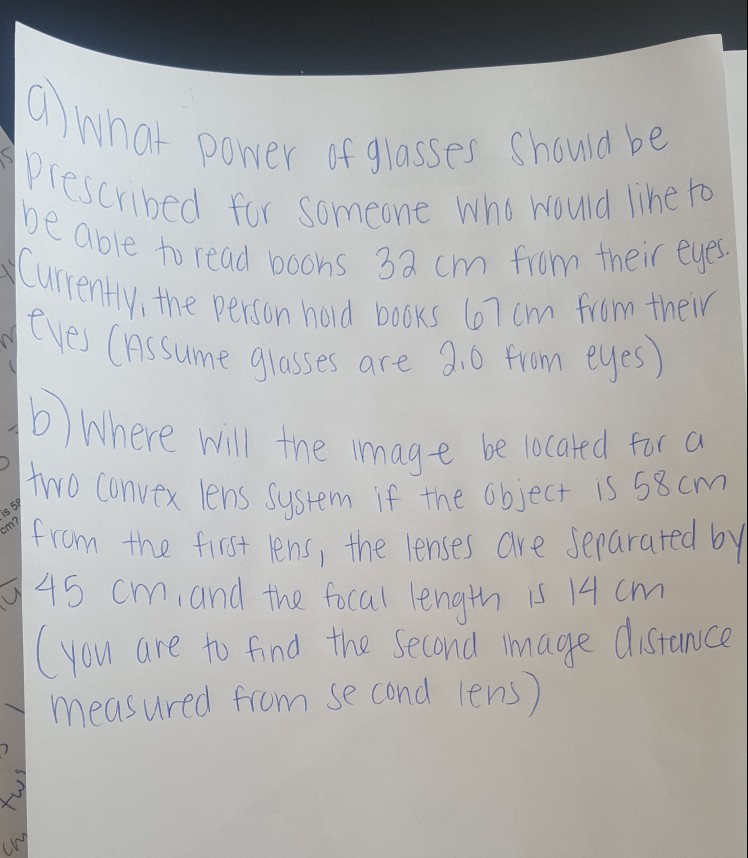 a) What power of glasses should be
prescribed for someone who would like to
be able to read books 32 cm from their eyes.
Currently, the person hold books 67 cm from their
eyes (Assume glasses are 2.0 from eyes)
b) Where will the image be located for a
two convex lens system if the object is 58 cm
from the first lens, the lenses are separated by
45 cm, and the focal length is 14 cm
(you are to find the second image distance
measured from se cond lens)
is 58
cm?